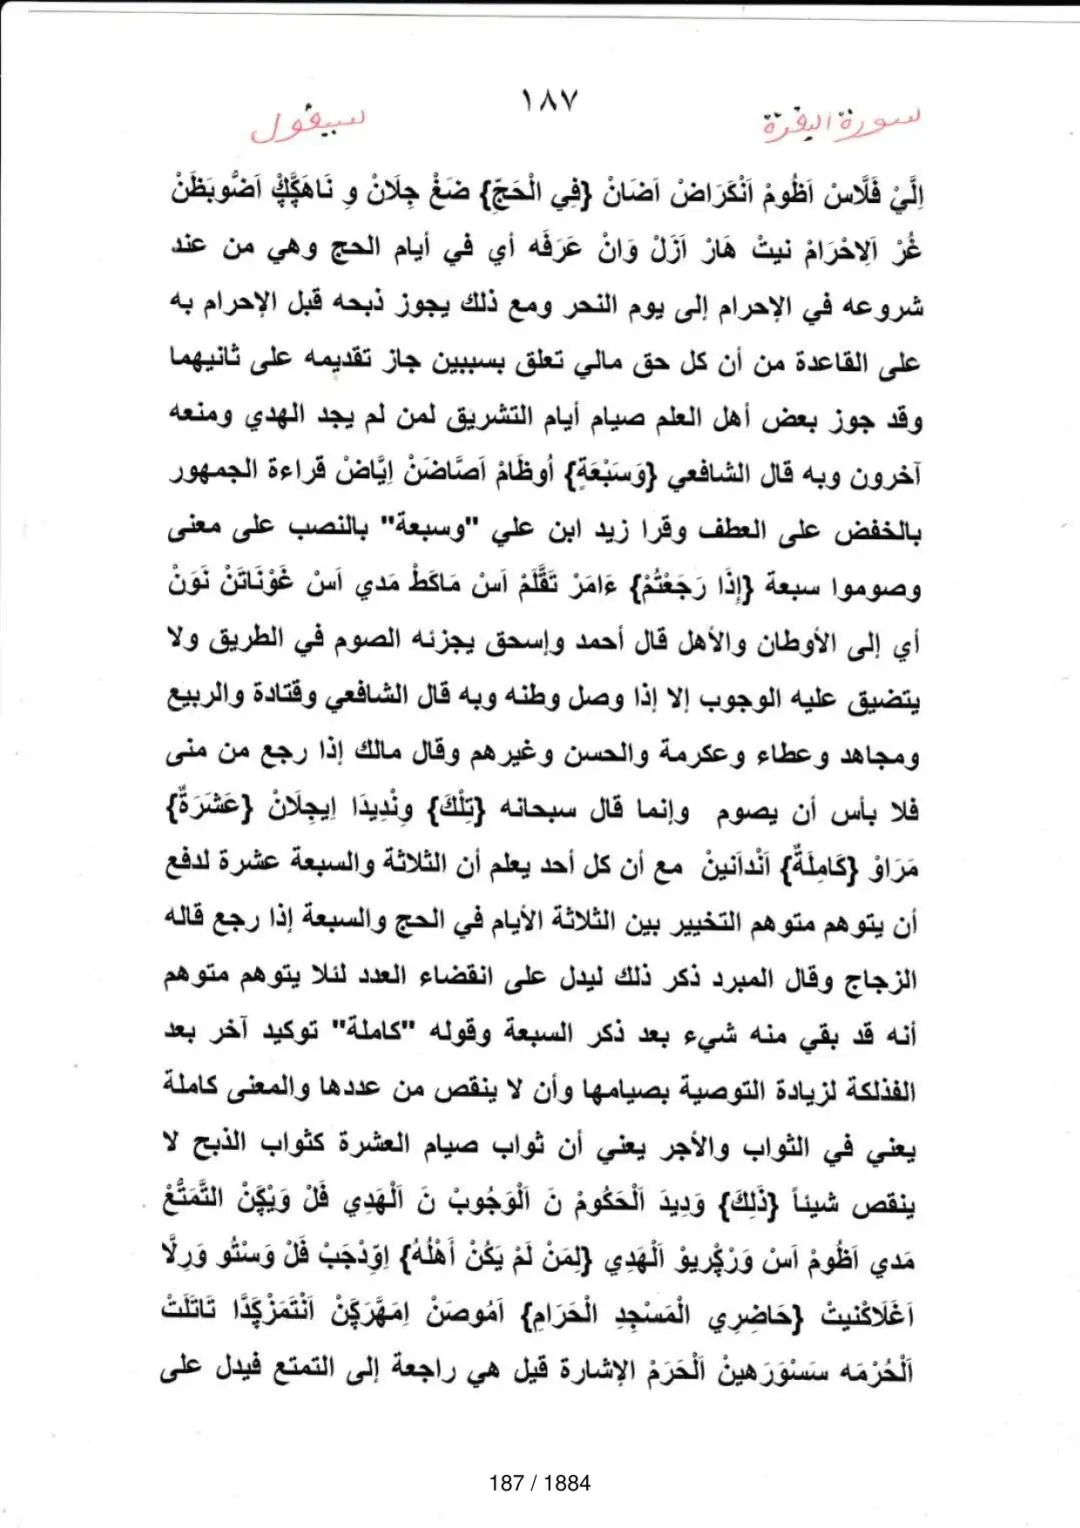 ١٨٧
سورة البقرة
سيقول
اِلَيْ فَلَّاسْ اَظُومْ اَنْكَرَاضْ اَضَانْ {فِي الْحَجِّ} ضَغْ جِلَانْ وِ نَاهَكِّكْ اَضُوبَظَنْ
غُرْ اَلِاحْرَامْ نيتْ هَارْ اَزَلْ وَانْ عَرَفَه أي في أيام الحج وهي من عند
شروعه في الإحرام إلى يوم النحر ومع ذلك يجوز ذبحه قبل الإحرام به
على القاعدة من أن كل حق مالي تعلق بسببين جاز تقديمه على ثانيهما
وقد جوز بعض أهل العلم صيام أيام التشريق لمن لم يجد الهدي ومنعه
آخرون وبه قال الشافعي {وَسَبْعَةٍ} أُوظَامْ اَصَّاضَنْ اِيَّاضْ قراءة الجمهور
بالخفض على العطف وقرا زيد ابن علي "وسبعة" بالنصب على معنى
وصوموا سبعة {إِذَا رَجَعْتُمْ} ءَامَرْ تَقَّلَمْ اَسْ مَاكَطْ مَدي اَسْ غَوْنَاتَنْ نَوَنْ
أي إلى الأوطان والأهل قال أحمد وإسحق يجزئه الصوم في الطريق ولا
يتضيق عليه الوجوب إلا إذا وصل وطنه وبه قال الشافعي وقتادة والربيع
ومجاهد وعطاء وعكرمة والحسن وغيرهم وقال مالك إذا رجع من منى
فلا بأس أن يصوم وإنما قال سبحانه {تِلْكَ} وِنْدِيدَا اِيجِلَانْ {عَشَرَةٌ}
مَرَاوْ {كَامِلَةٌ} اَنْدَاَنينْ مع أن كل أحد يعلم أن الثلاثة والسبعة عشرة لدفع
أن يتوهم متوهم التخيير بين الثلاثة الأيام في الحج والسبعة إذا رجع قاله
الزجاج وقال المبرد ذكر ذلك ليدل على انقضاء العدد لئلا يتوهم متوهم
أنه قد بقي منه شيء بعد ذكر السبعة وقوله "كاملة" توكيد آخر بعد
الفذلكة لزيادة التوصية بصيامها وأن لا ينقص من عددها والمعنى كاملة
يعني في الثواب والأجر يعني أن ثواب صيام العشرة كثواب الذبح لا
ينقص شيئاً {ذَلِكَ} وَدِيدَ اَلْحَكُومْ نَ اَلْوَجُوبْ نَ اَلْهَدِي فَلْ وَيْكِنْ التَّمَتُّعْ
مَدي اَظُومْ اَسْ وَرْكْرِيوْ اَلْهَدِي {لِمَنْ لَمْ يَكُنْ أَهْلُهُ} اِوِّدْجَبْ فَلْ وَسْتُو وَرِلَّا
اَغْلَاكْنيتْ {حَاضِرِي الْمَسْجِدِ الْحَرَامِ} اَمُوصَنْ اِمَهَّرَكَنْ اَنْتَمَزْكِدَّا تَاتَلَتْ
اَلْحُرْمَه سَسْوَرَهينْ اَلْحَرَمْ الإشارة قيل هي راجعة إلى التمتع فيدل على
187 / 1884